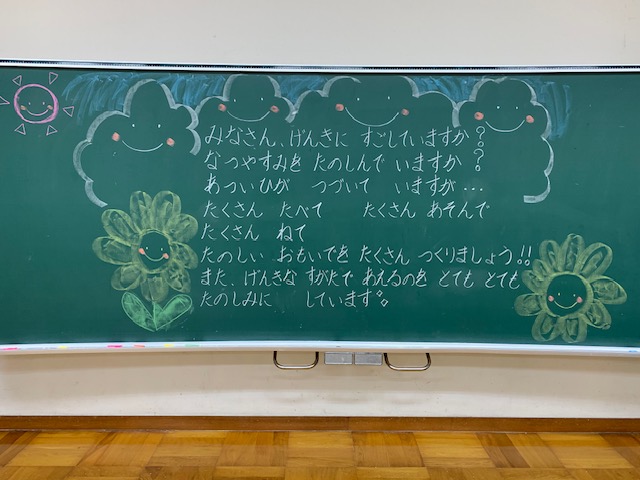 みなさん、げんきに すごしていますか?
なつやすみを たのしんで いますか?
あついひが つづいて いますが...
たくさん たべて たくさん あそんで
たくさん ねて
たのしい おもいでを たくさん つくりましょう!!
また、げんきな すがたで あえるのを とても とても
たのしみに しています。